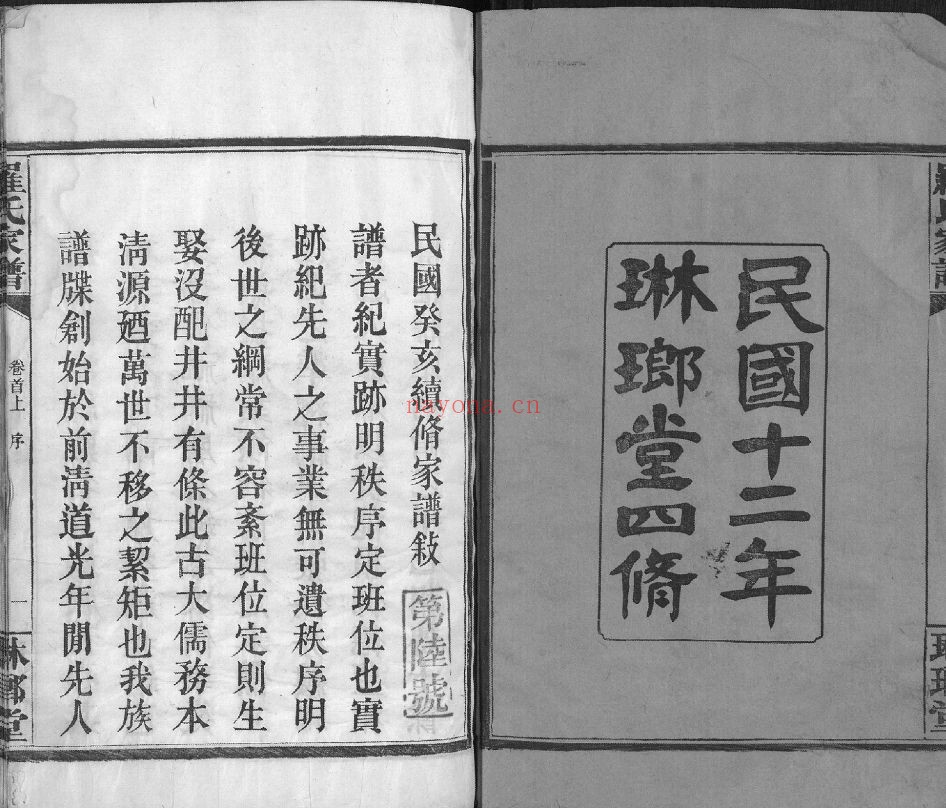 民國十二年
琳瑯堂四脩
民國癸亥續脩家譜敍
第陸號
譜者紀實跡明秩序定班位也實
跡紀先人之事業無可遺秩序明
後世之綱常不容紊班位定則生
娶沒配井井有條此古大儒務本
淸源廼萬世不移之絜矩也我族
譜牒創始於前淸道光年閒先人
羅氏家譜
卷首上 序
一
琳瑯堂
nayona.cn